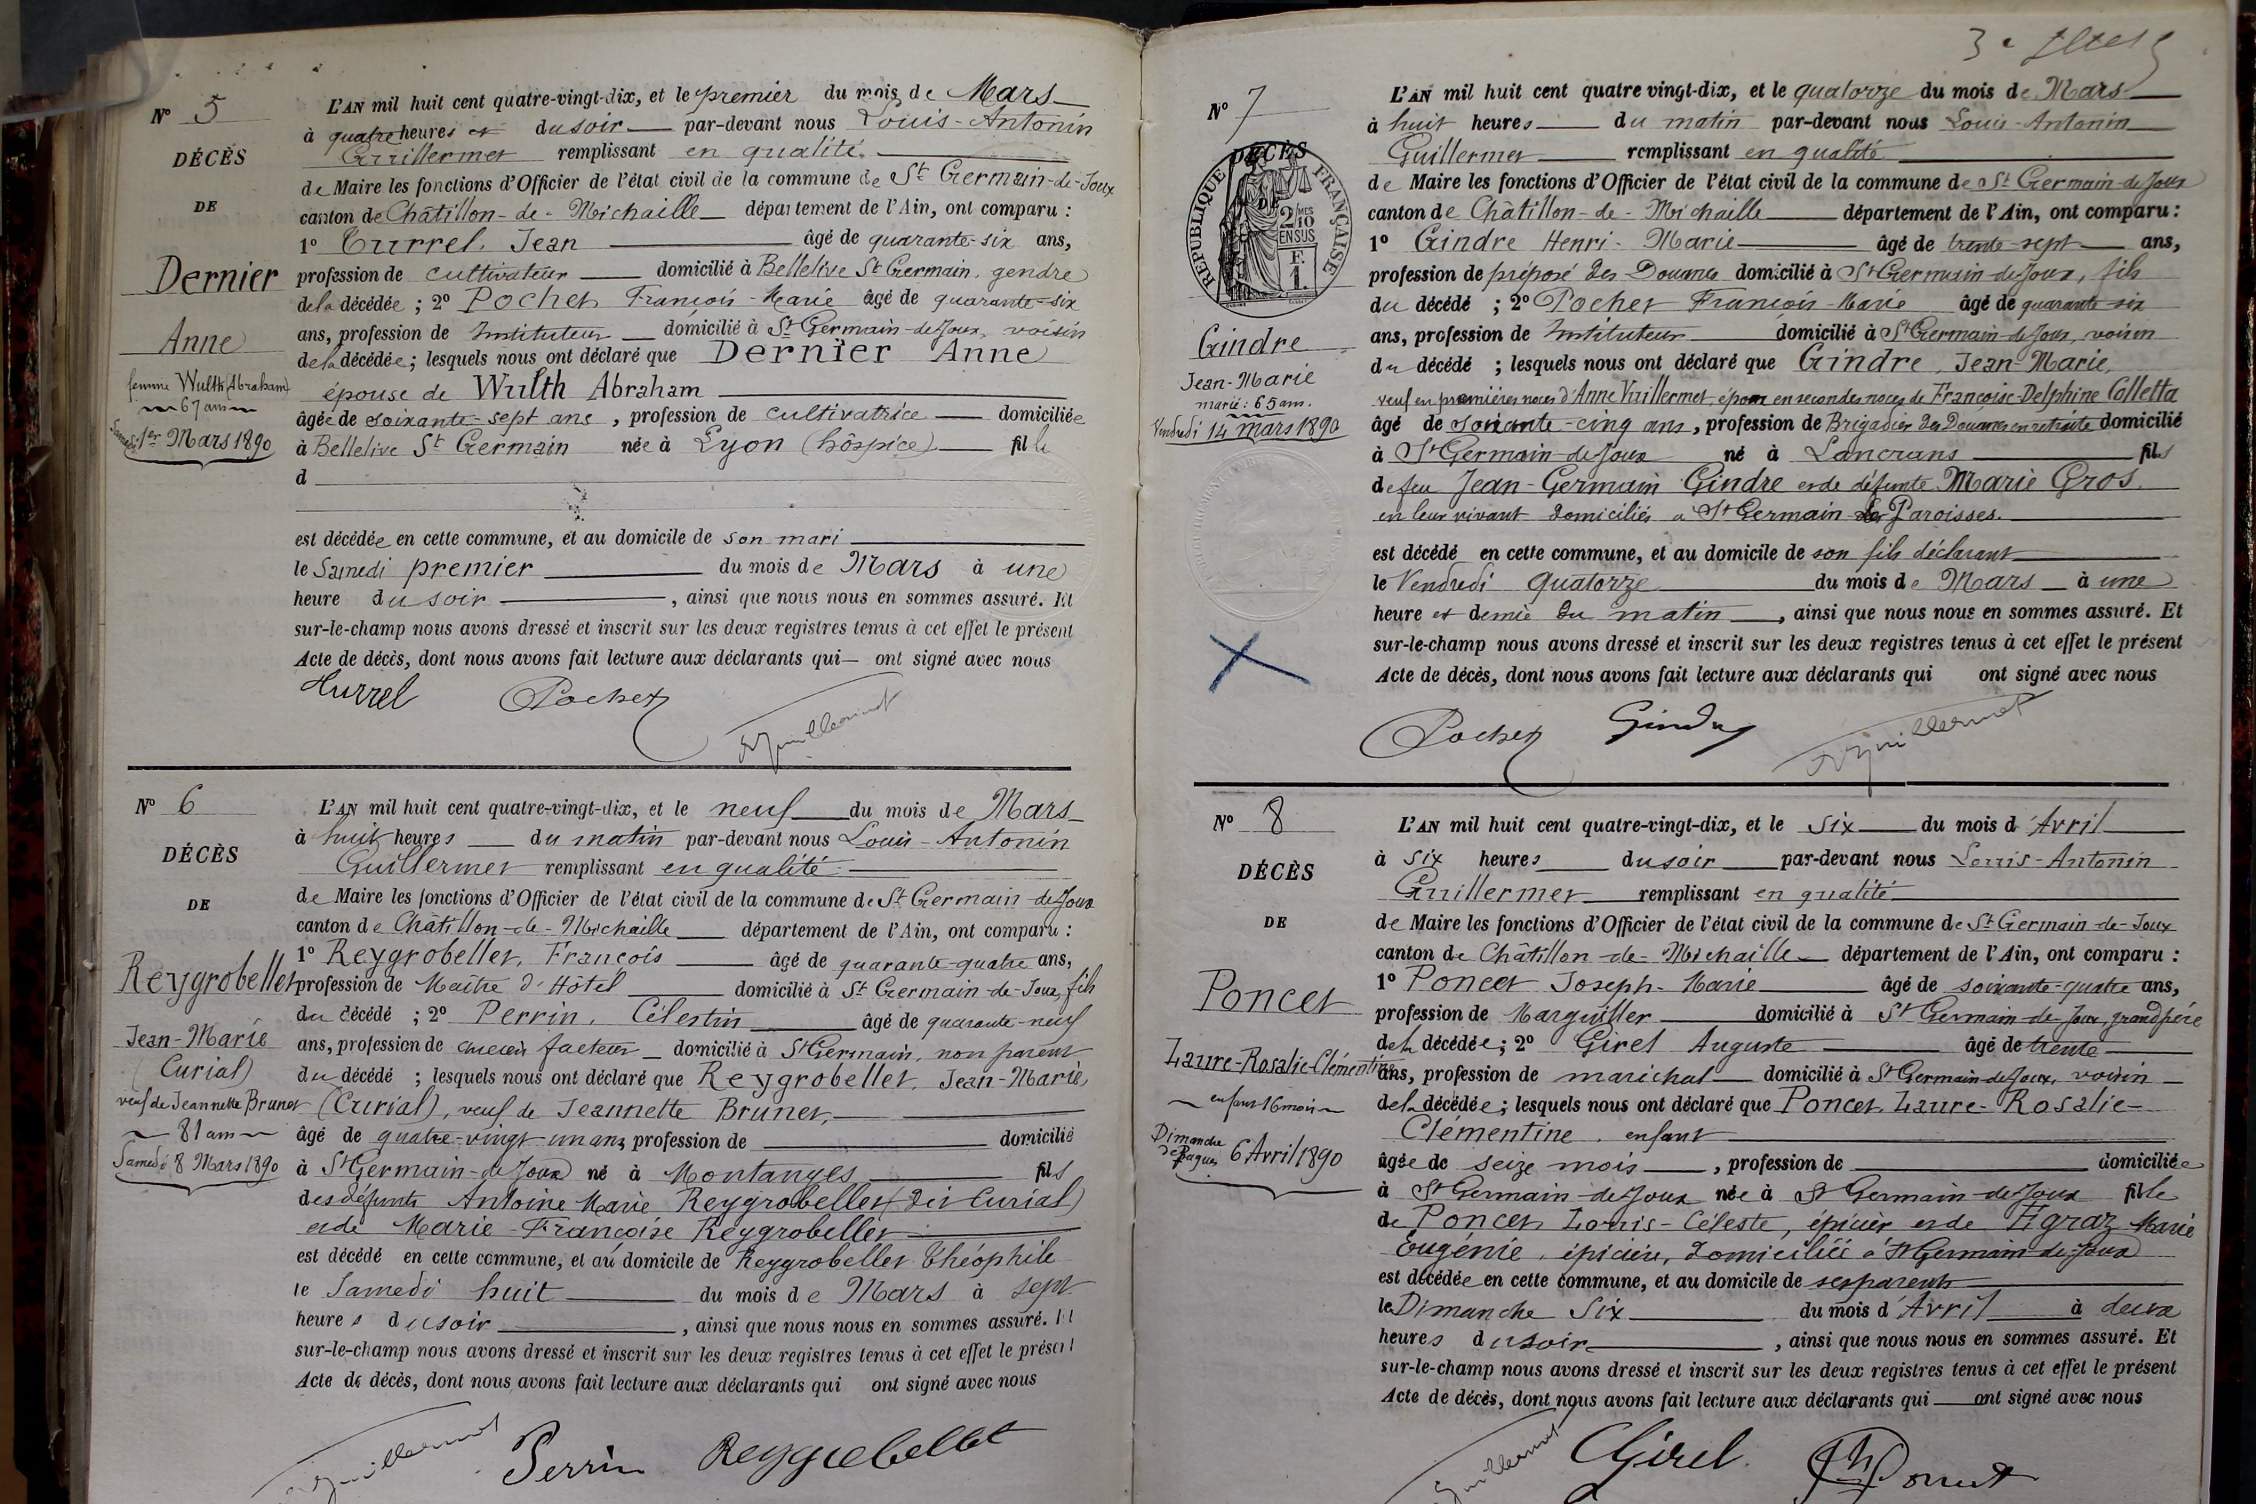 N° 5
DÉCÈS
DE
Dernier
Anne
femme Wulth (Abraham)
67 ans
Samedi 1er Mars 1890
L'AN mil huit cent quatre-vingt-dix, et le premier du mois de Mars
à quatre heures et du soir par-devant nous Louis-Antonin
Guillermet remplissant en qualité
de Maire les fonctions d'Officier de l'état civil de la commune de St Germain-de-Joux
canton de Châtillon-de-Michaille département de l'Ain, ont comparu :
1° Turrel, Jean âgé de quarante-six ans,
profession de cultivateur domicilié à Bellelive St Germain, gendre
de la décédée ; 2° Pochet François-Marie âgé de quarante-six
ans, profession de Instituteur domicilié à St Germain-de-Joux, voisin
de la décédée ; lesquels nous ont déclaré que Dernier Anne
épouse de Wulth Abraham
âgée de soixante-sept ans, profession de cultivatrice domiciliée
à Bellelive St Germain née à Lyon (hôspice) fille
d
est décédée en cette commune, et au domicile de son mari
le Samedi premier du mois de Mars à une
heure du soir, ainsi que nous nous en sommes assuré. Et
sur-le-champ nous avons dressé et inscrit sur les deux registres tenus à cet effet le présent
Acte de décès, dont nous avons fait lecture aux déclarants qui ont signé avec nous
Turrel Pochet Guillermet
N° 6
DÉCÈS
DE
Reygrobellet
Jean-Marie
(Curial)
veuf de Jeannette Brunet
81 ans
Samedi 8 Mars 1890
L'AN mil huit cent quatre-vingt-dix, et le neuf du mois de Mars
à huit heures du matin par-devant nous Louis-Antonin
Guillermet remplissant en qualité
de Maire les fonctions d'Officier de l'état civil de la commune de St Germain-de-Joux
canton de Châtillon-de-Michaille département de l'Ain, ont comparu :
1° Reygrobellet, François âgé de quarante-quatre ans,
profession de Maître d'Hôtel domicilié à St Germain-de-Joux, fils
du décédé ; 2° Perrin, Célestin âgé de quarante-neuf
ans, profession de ancien facteur domicilié à St Germain, non parent
du décédé ; lesquels nous ont déclaré que Reygrobellet, Jean-Marie,
(Curial), veuf de Jeannette Brunet,
âgé de quatre-vingt-un ans, profession de domicilié
à St Germain-de-Joux né à Montanges fils
des défunts Antoine Marie Reygrobellet (dit Curial)
et de Marie-Françoise Reygrobellet
est décédé en cette commune, et au domicile de Reygrobellet Théophile
le Samedi huit du mois de Mars à sept
heures du soir, ainsi que nous nous en sommes assuré. Et
sur-le-champ nous avons dressé et inscrit sur les deux registres tenus à cet effet le présent
Acte de décès, dont nous avons fait lecture aux déclarants qui ont signé avec nous
Guillermet Perrin Reygrobellet
N° 7
DÉCÈS
DE
REPUBLIQUE FRANÇAISE
2/10 MES
EN SUS
F.
1.
Gindre
Jean-Marie
marié : 65 ans.
Vendredi 14 mars 1890
L'AN mil huit cent quatre vingt-dix, et le quatorze du mois de Mars
à huit heures du matin par-devant nous Louis-Antonin
Guillermet remplissant en qualité
de Maire les fonctions d'Officier de l'état civil de la commune de St Germain-de-Joux
canton de Châtillon-de-Michaille département de l'Ain, ont comparu :
1° Gindre Henri-Marie âgé de trente-sept ans,
profession de préposé des Douanes domicilié à St Germain-de-Joux, fils
du décédé ; 2° Pochet François-Marie âgé de quarante-six
ans, profession de Instituteur domicilié à St Germain-de-Joux, voisin
du décédé ; lesquels nous ont déclaré que Gindre, Jean-Marie,
veuf en premières noces d'Anne Vuillermet, époux en secondes noces de Françoise-Delphine Colletta
âgé de soixante-cinq ans, profession de Brigadier des Douanes en retraite domicilié
à St Germain-de-Joux né à Lancrans fils
de feu Jean-Germain Gindre et de défunte Marie Gros
en leur vivant domiciliés à St Germain-les Paroisses.
est décédé en cette commune, et au domicile de son fils déclarant
le Vendredi quatorze du mois de Mars à une
heure et demie du matin, ainsi que nous nous en sommes assuré. Et
sur-le-champ nous avons dressé et inscrit sur les deux registres tenus à cet effet le présent
Acte de décès, dont nous avons fait lecture aux déclarants qui ont signé avec nous
Pochet Gindre Guillermet
N° 8
DÉCÈS
DE
Poncet
Laure-Rosalie-Clémentine
enfant 16 mois
Dimanche de Pâques 6 Avril 1890
L'AN mil huit cent quatre-vingt-dix, et le six du mois d'Avril
à six heures du soir par-devant nous Louis-Antonin
Guillermet remplissant en qualité
de Maire les fonctions d'Officier de l'état civil de la commune de St Germain-de-Joux
canton de Châtillon-de-Michaille département de l'Ain, ont comparu :
1° Poncet Joseph-Marie âgé de soixante-quatre ans,
profession de Marguiller domicilié à St Germain-de-Joux grandpère
de la décédée ; 2° Girel Auguste âgé de trente
ans, profession de maréchal domicilié à St Germain-de-Joux, voisin
de la décédée ; lesquels nous ont déclaré que Poncet Laure-Rosalie-
Clémentine, enfant
âgée de seize mois, profession de domiciliée
à St Germain-de-Joux née à St Germain-de-Joux fille
de Poncet Louis-Céleste, épicier et de Egraz Marie
Eugénie, épicière, domiciliés à St Germain-de-Joux
est décédée en cette commune, et au domicile de ses parents
le Dimanche six du mois d'Avril à deux
heures du soir, ainsi que nous nous en sommes assuré. Et
sur-le-champ nous avons dressé et inscrit sur les deux registres tenus à cet effet le présent
Acte de décès, dont nous avons fait lecture aux déclarants qui ont signé avec nous
Guillermet Girel Poncet